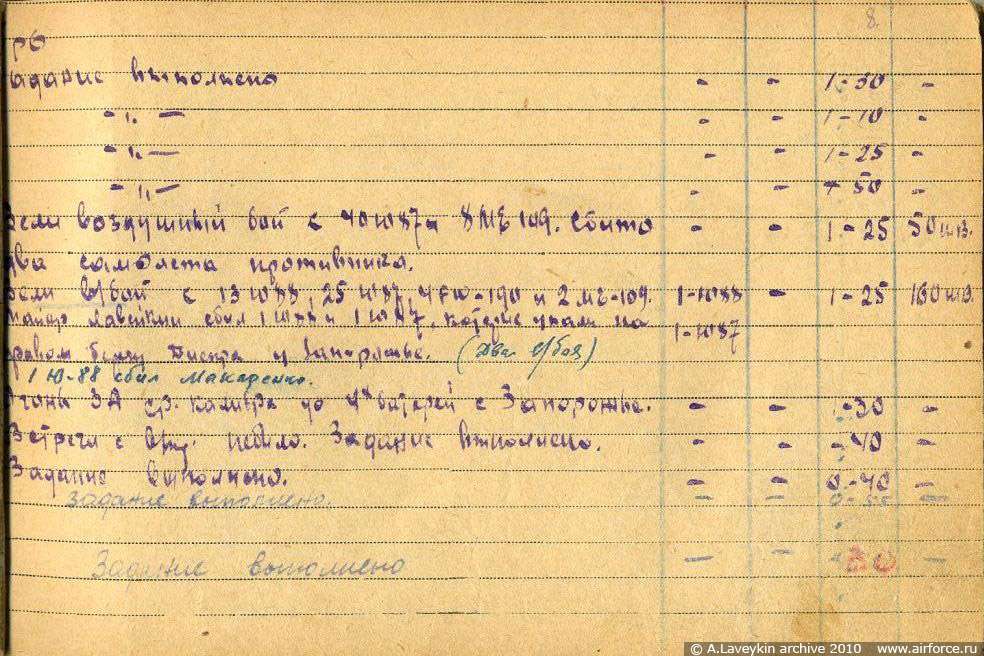 8.
рб
адание выполнено - - 1-30 -
- „ — - - 1-10 -
- „ — - - 1-25 -
- „ — - - 50 -
Вели воздушный бой с 40 Ю 87 и 8 МЕ 109. Сбито - - 1-25 50 шв.
два самолета противника.
Вели в/бой с 13 Ю 88, 25 Ю 87, 4 FW-190 и 2 МЕ-109. 1-Ю88 - 1-25 160 шв.
Майор Лавейкин сбил 1 Ю 88 и 1 Ю 87, которые упали на 1-Ю87
правом берегу Днепра у Запорожье. (Два в/боя)
1 Ю-88 сбил Макаренко.
Огонь ЗА ср. калибра до 4х батарей с Запорожье. - - -30 -
Встречи с небыло. Задание выполнено. - - -40 -
Задание выполнено. - - 0-40 -
Задание выполнено. - - 0-55 -
Задание выполнено - - 30 -
© A.Laveykin archive 2010 www.airforce.ru